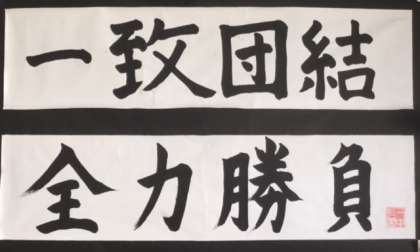 一致団結
全力勝負